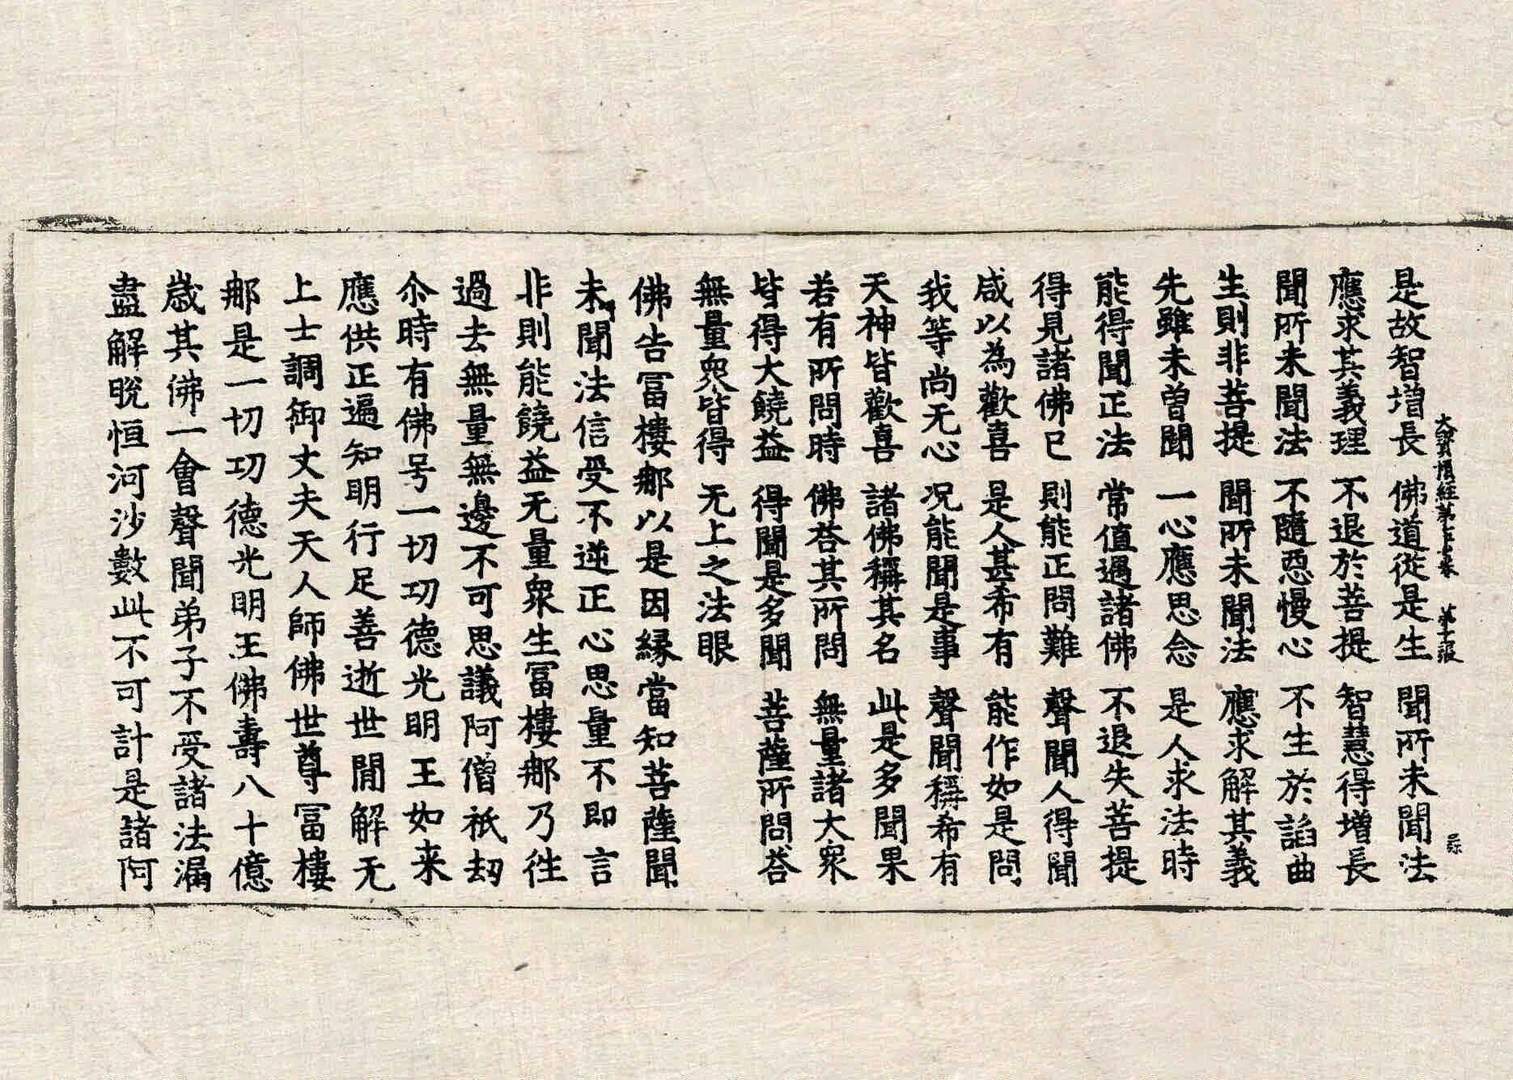 大寶積經第七十七卷 第十一張
是故智增長 佛道從是生 聞所未聞法
應求其義理 不退於菩提 智慧得增長
聞所未聞法 不隨惡慢心 不生於諂曲
生則非菩提 聞所未聞法 應求解其義
先雖未曾聞 一心應思念 是人求法時
能得聞正法 常值遇諸佛 不退失菩提
得見諸佛已 則能正問難 聲聞人得聞
咸以為歡喜 是人甚希有 能作如是問
我等尚无心 况能聞是事 聲聞稱希有
天神皆歡喜 諸佛稱其名 此是多聞果
若有所問時 佛荅其所問 無量諸大衆
皆得大饒益 得聞是多聞 菩薩所問荅
無量衆皆得 无上之法眼
佛告冨樓那以是因縁當知菩薩聞
未聞法信受不逆正心思量不即言
非則能饒益无量衆生冨樓那乃徃
過去無量無邊不可思議阿僧祇劫
尒時有佛号一切功德光明王如来
應供正遍知明行足善逝世閒解无
上士調御丈夫天人師佛世尊冨樓
那是一切功德光明王佛壽八十億
歲其佛一會聲聞弟子不受諸法漏
盡解脫恒河沙數此不可計是諸阿